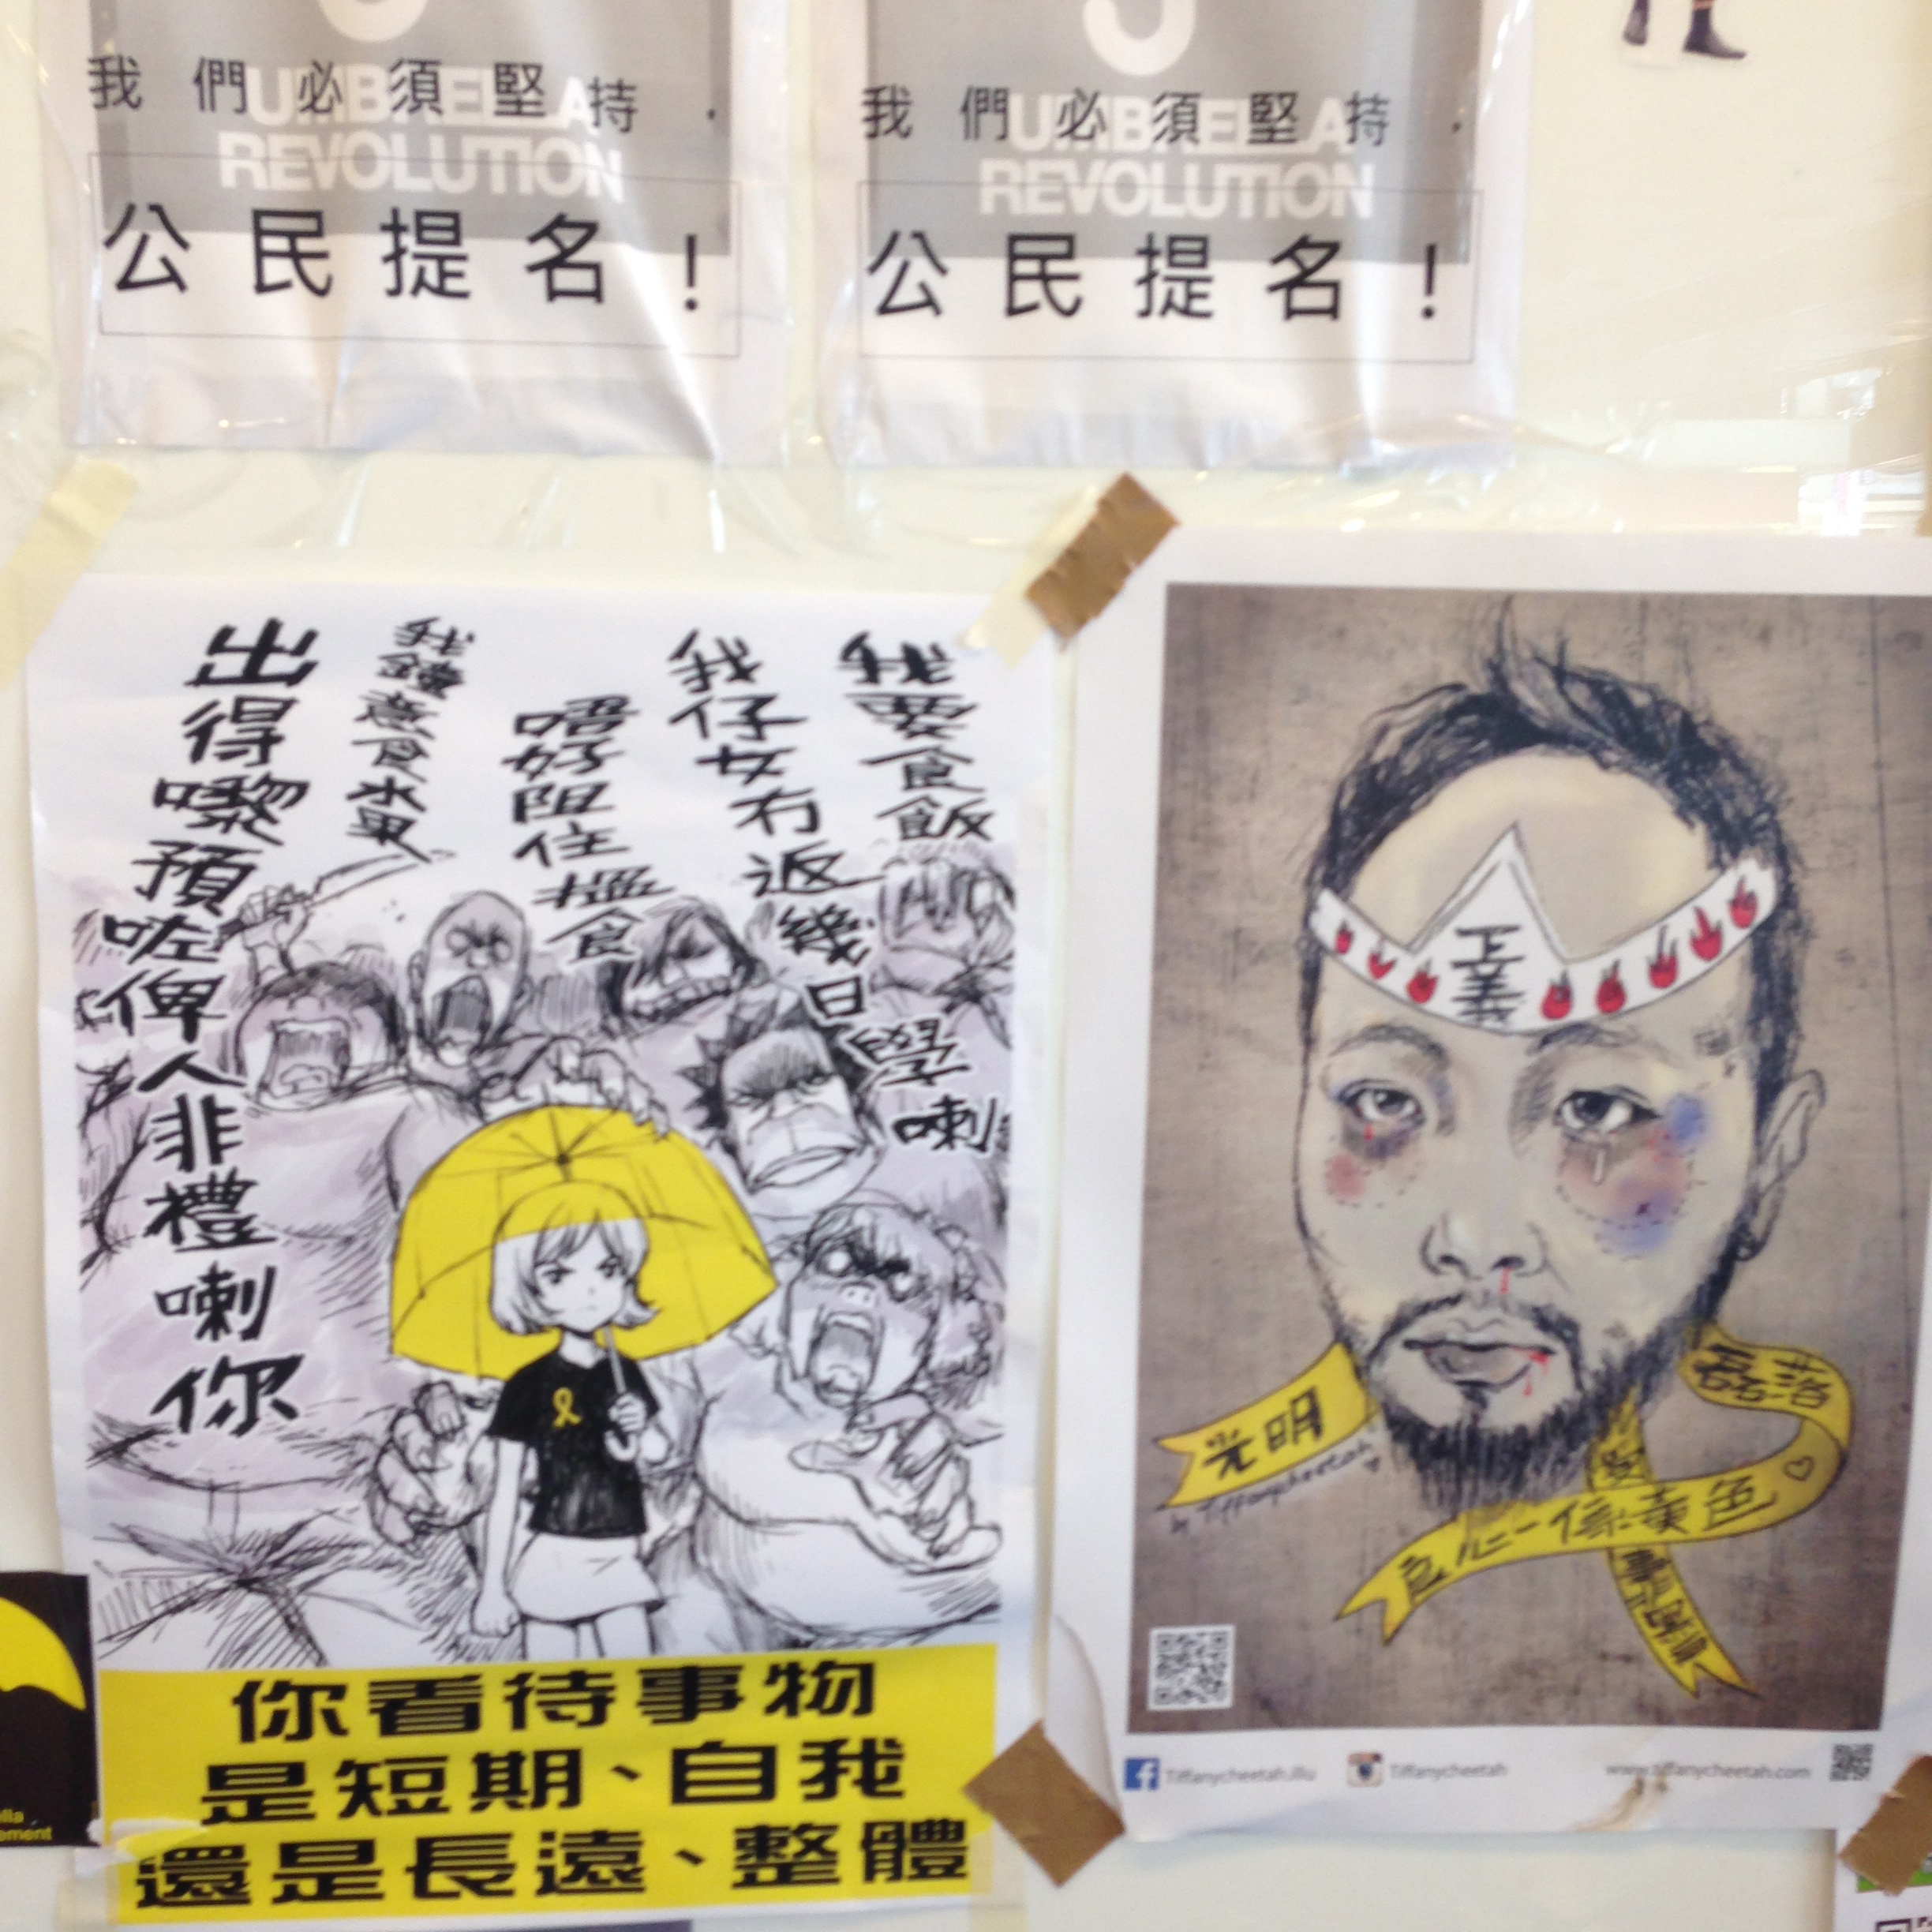 UMBRELLA
REVOLUTION
我們必須堅持．
公民提名！
UMBRELLA
REVOLUTION
我們必須堅持．
公民提名！
我要食飯
我仔女冇返幾日學喇
唔好阻住搵食
我鍾意食水果
出得嚟預咗俾人非禮喇你
你看待事物
是短期、自我
還是長遠、整體
正義
光明
磊落
良心一係黃色
by Tiffanycheetah
Tiffanycheetah.illu
Tiffanycheetah
www.tiffanycheetah.com